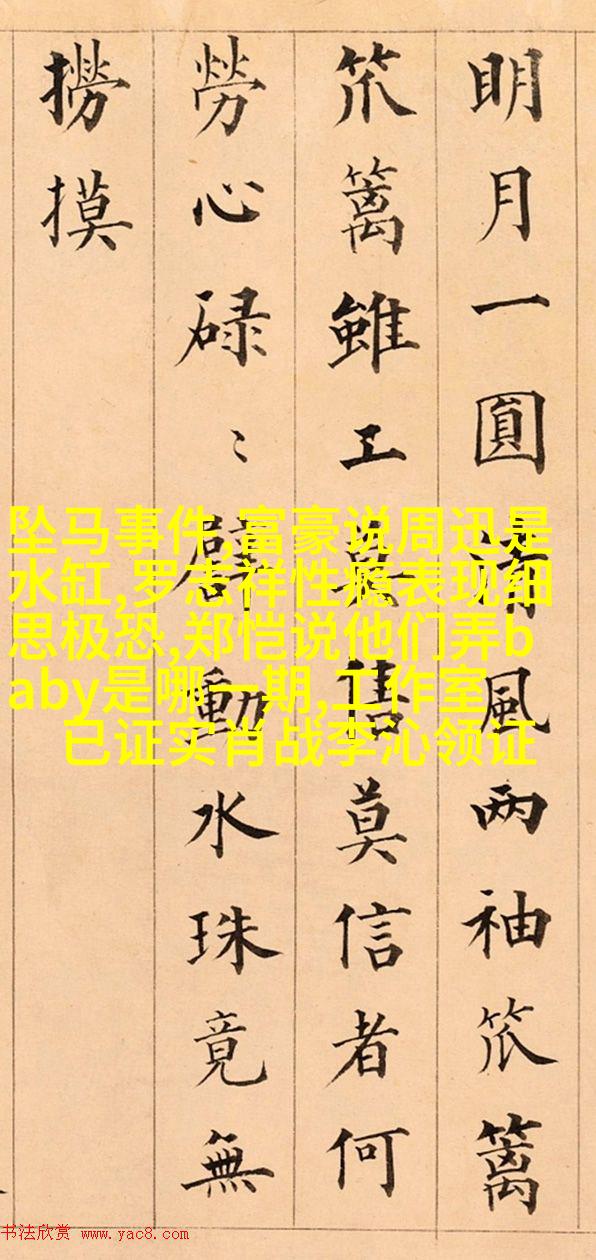 明月一圓清風两袖笊篱
笊篱雖工售莫信者何
勞心碌〻動水珠竟無
撈摸
坠马事件,富豪说周迅是
水缸,罗志祥性瘾表现细
思极恐,郑恺说他们弄b
aby是哪一期,工作室
已证实肖战李沁领证
书法欣赏 www.yac8.com